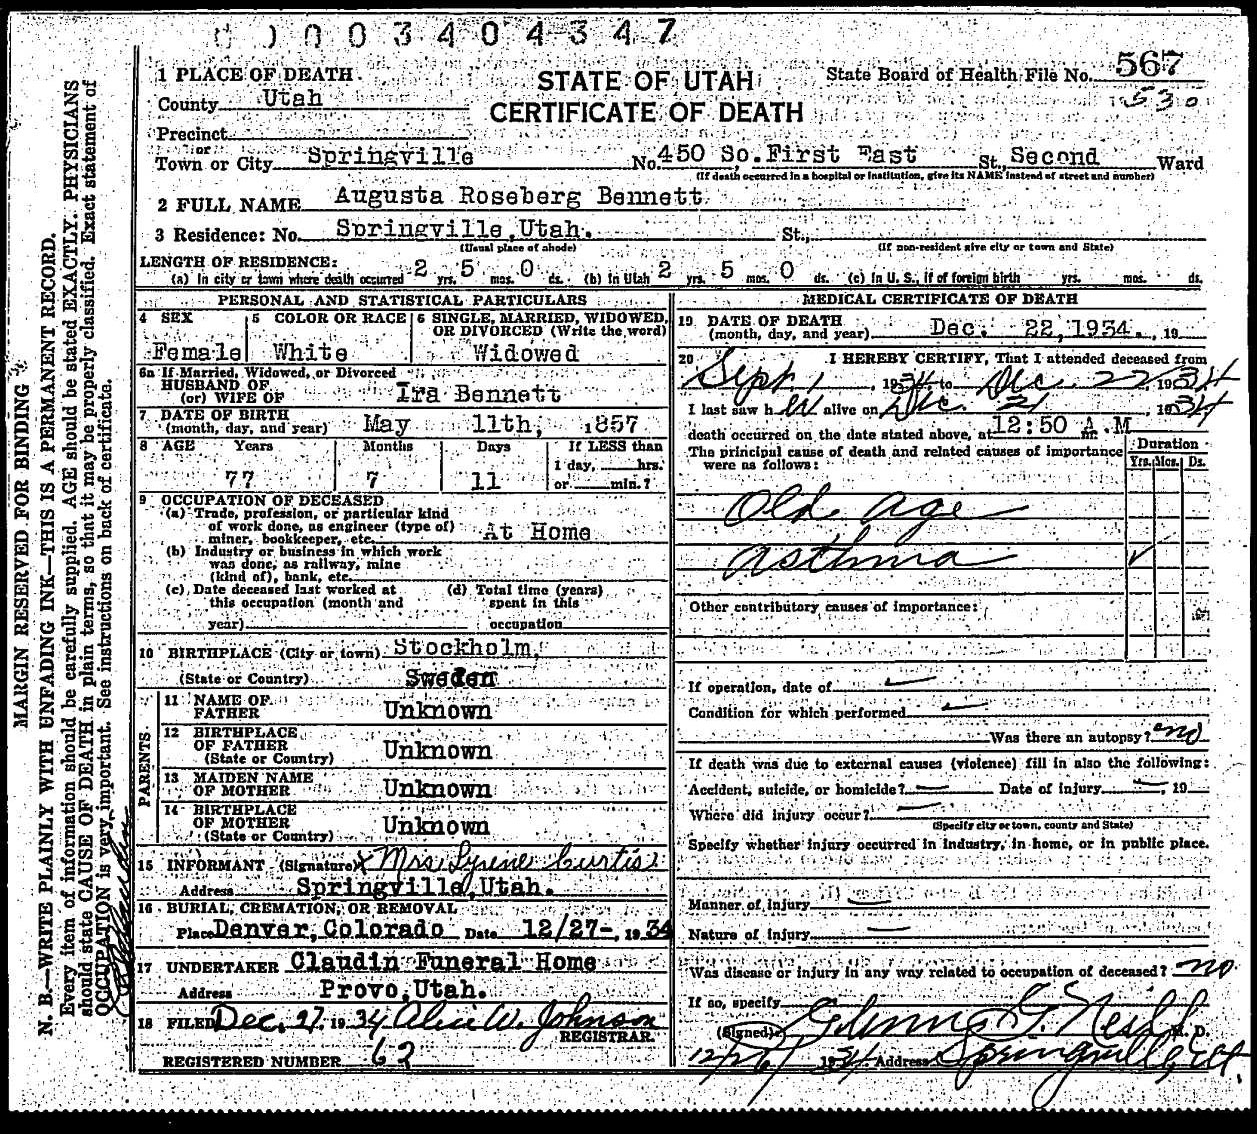 0003404347
1 PLACE OF DEATH
STATE OF UTAH
CERTIFICATE OF DEATH
State Board of Health File No. 567
530
County Utah
Precinct
or
Town or City Springville No. 450 So. First East St., Second Ward
(If death occurred in a hospital or institution, give its NAME instead of street and number)
2 FULL NAME Augusta Roseberg Bennett
3 Residence: No. Springville, Utah. St.,
(Usual place of abode) (If non-resident give city or town and State)
LENGTH OF RESIDENCE:
(a) In city or town where death occurred 2 yrs. 5 mos. 0 ds. (b) In Utah 2 yrs. 5 mos. 0 ds. (c) In U. S., if of foreign birth yrs. mos. ds.
PERSONAL AND STATISTICAL PARTICULARS
4 SEX Female
5 COLOR OR RACE White
6 SINGLE, MARRIED, WIDOWED, OR DIVORCED (Write the word)
Widowed
6a If Married, Widowed, or Divorced
HUSBAND OF
(or) WIFE OF Ira Bennett
7 DATE OF BIRTH
(month, day, and year) May 11th, 1857
8 AGE Years Months Days If LESS than
1 day, hrs.
77 7 11 or min.?
9 OCCUPATION OF DECEASED
(a) Trade, profession, or particular kind
of work done, as engineer (type of)
miner, bookkeeper, etc. At Home
(b) Industry or business in which work
was done, as railway, mine
(kind of), bank, etc.
(c) Date deceased last worked at
this occupation (month and
year)
(d) Total time (years)
spent in this
occupation
10 BIRTHPLACE (City or town) Stockholm,
(State or Country) Sweden
PARENTS
11 NAME OF
FATHER Unknown
12 BIRTHPLACE
OF FATHER Unknown
(State or Country)
13 MAIDEN NAME
OF MOTHER Unknown
14 BIRTHPLACE
OF MOTHER Unknown
(State or Country)
15 INFORMANT (Signature) x Mrs Lyrene Curtis
Address Springville, Utah.
16 BURIAL, CREMATION, OR REMOVAL
Place Denver, Colorado Date 12/27-, 1934
17 UNDERTAKER Claudin Funeral Home
Address Provo, Utah.
18 FILED Dec. 27, 1934 Alice W. Johnson
REGISTRAR.
REGISTERED NUMBER 63
MEDICAL CERTIFICATE OF DEATH
19 DATE OF DEATH
(month, day, and year) Dec. 22, 1934. , 19
20 I HEREBY CERTIFY, That I attended deceased from
Sept 1, 1934 to Dec. 22 1934
I last saw her alive on Dec. 21, 1934
death occurred on the date stated above, at 12:50 A.M
The principal cause of death and related causes of importance
were as follows:
Duration
Yrs. Mos. Ds.
Old age
asthma ✓
Other contributory causes of importance:
If operation, date of
Condition for which performed
Was there an autopsy? no
If death was due to external causes (violence) fill in also the following:
Accident, suicide, or homicide? Date of injury , 19
Where did injury occur?
(Specify city or town, county and State)
Specify whether injury occurred in industry, in home, or in public place.
Manner of injury
Nature of injury
Was disease or injury in any way related to occupation of deceased? no
If so, specify
(Signed) M. D.
12/26/1934 Address Springville, Ut.
MARGIN RESERVED FOR BINDING
N. B.—WRITE PLAINLY WITH UNFADING INK—THIS IS A PERMANENT RECORD.
Every item of information should be carefully supplied. AGE should be stated EXACTLY. PHYSICIANS
should state CAUSE OF DEATH in plain terms, so that it may be properly classified. Exact statement of
OCCUPATION is very important. See instructions on back of certificate.